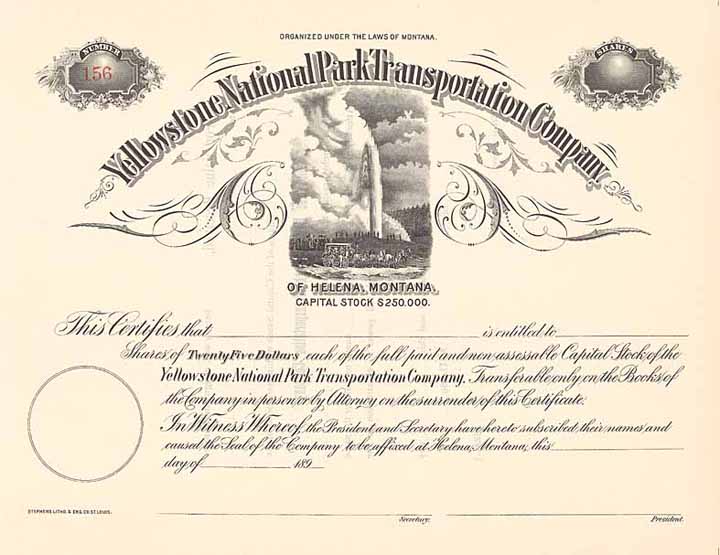 ORGANIZED UNDER THE LAWS OF MONTANA.
NUMBER
156
SHARES
Yellowstone National Park Transportation Company,
OF HELENA, MONTANA.
CAPITAL STOCK $250.000.
This Certifies that is entitled to
Shares of Twenty Five Dollars each of the full paid and non-assessable Capital Stock of the
Yellowstone National Park Transportation Company, Transferable only on the Books of
the Company in person or by Attorney on the surrender of this Certificate.
In Witness Whereof, the President and Secretary have hereto subscribed their names and
caused the Seal of the Company to be affixed at Helena, Montana, this
day of 189
STEPHENS LITHO. & ENG. CO. ST. LOUIS.
Secretary.
President.